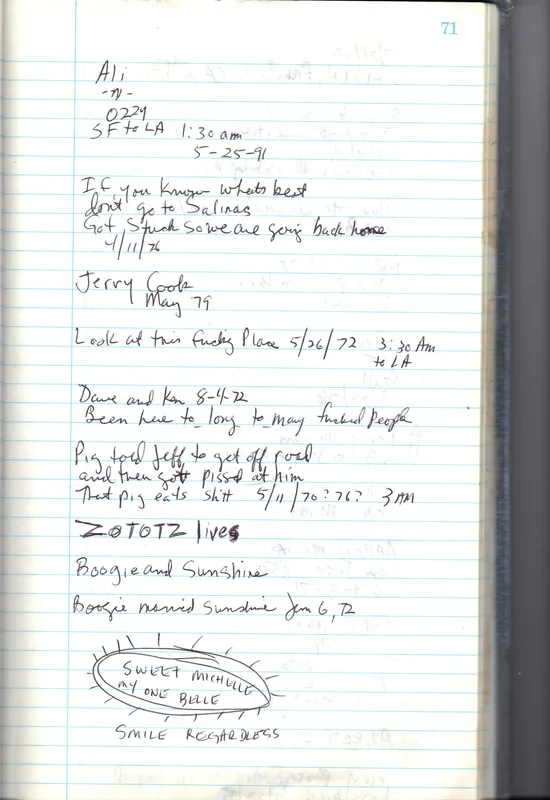 71
Ali
-N-
0229
SF to LA 1:30 am
5-25-91
If you know whats best
don't go to Salinas
Got Stuck so we are going back home
4/11/76
Jerry Cook
May 79
Look at this fucking Place 5/26/72 3:30 Am
to LA
Dave and Ken 8-4-72
Been here to long to many fucked People
Pig told Jeff to get off road
and then gott pissd at him
That pig eats shitt 5/11/70? 76? 3 AM
ZOTOTZ lives
Boogie and Sunshine
Boogie married Sunshine Jun 6, 72
SWEET MICHELLE
MY ONE BELLE
SMILE REGARDLESS